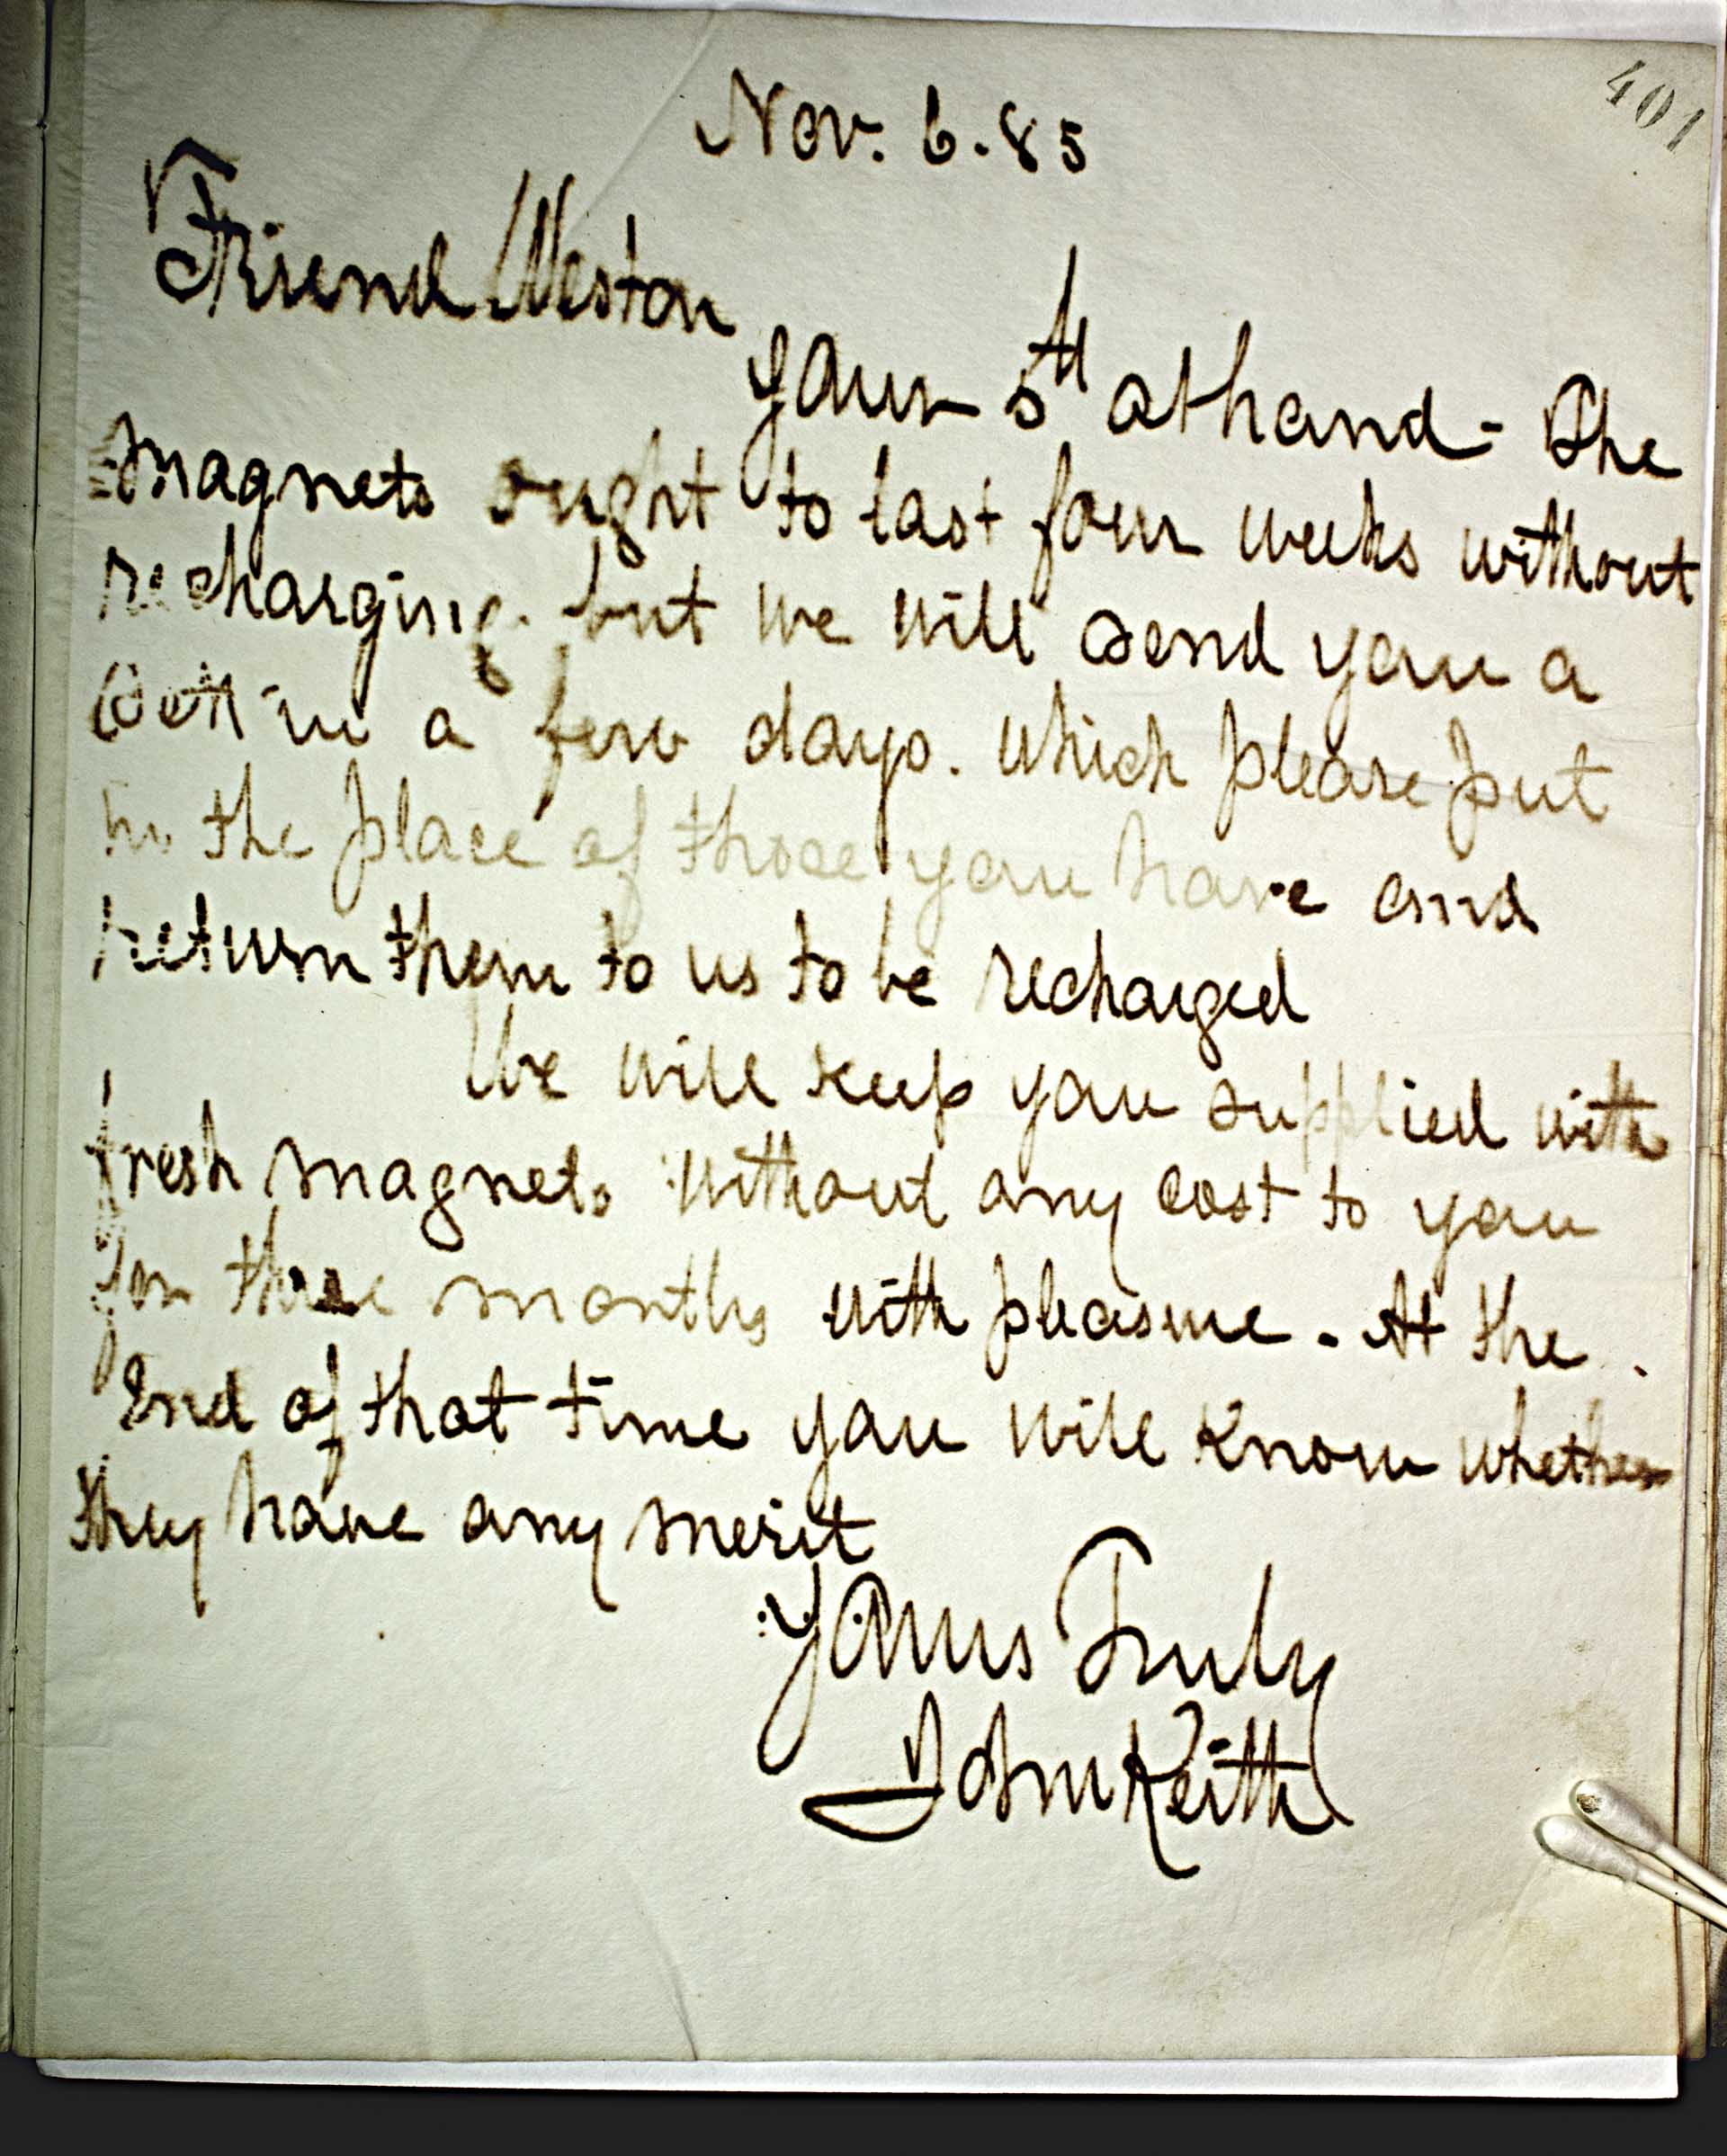 401
Nov. 6. 85
Friend Weston
Your 5th at hand - The
magnets ought to last four weeks without
recharging. but we will send you a
Sett in a few days. which please put
in the place of those you have and
return them to us to be recharged
We will keep you supplied with
fresh magnets without any cost to you
for three months with pleasure. At the
End of that time you will know whether
they have any merit
Yours Truly
John Keith